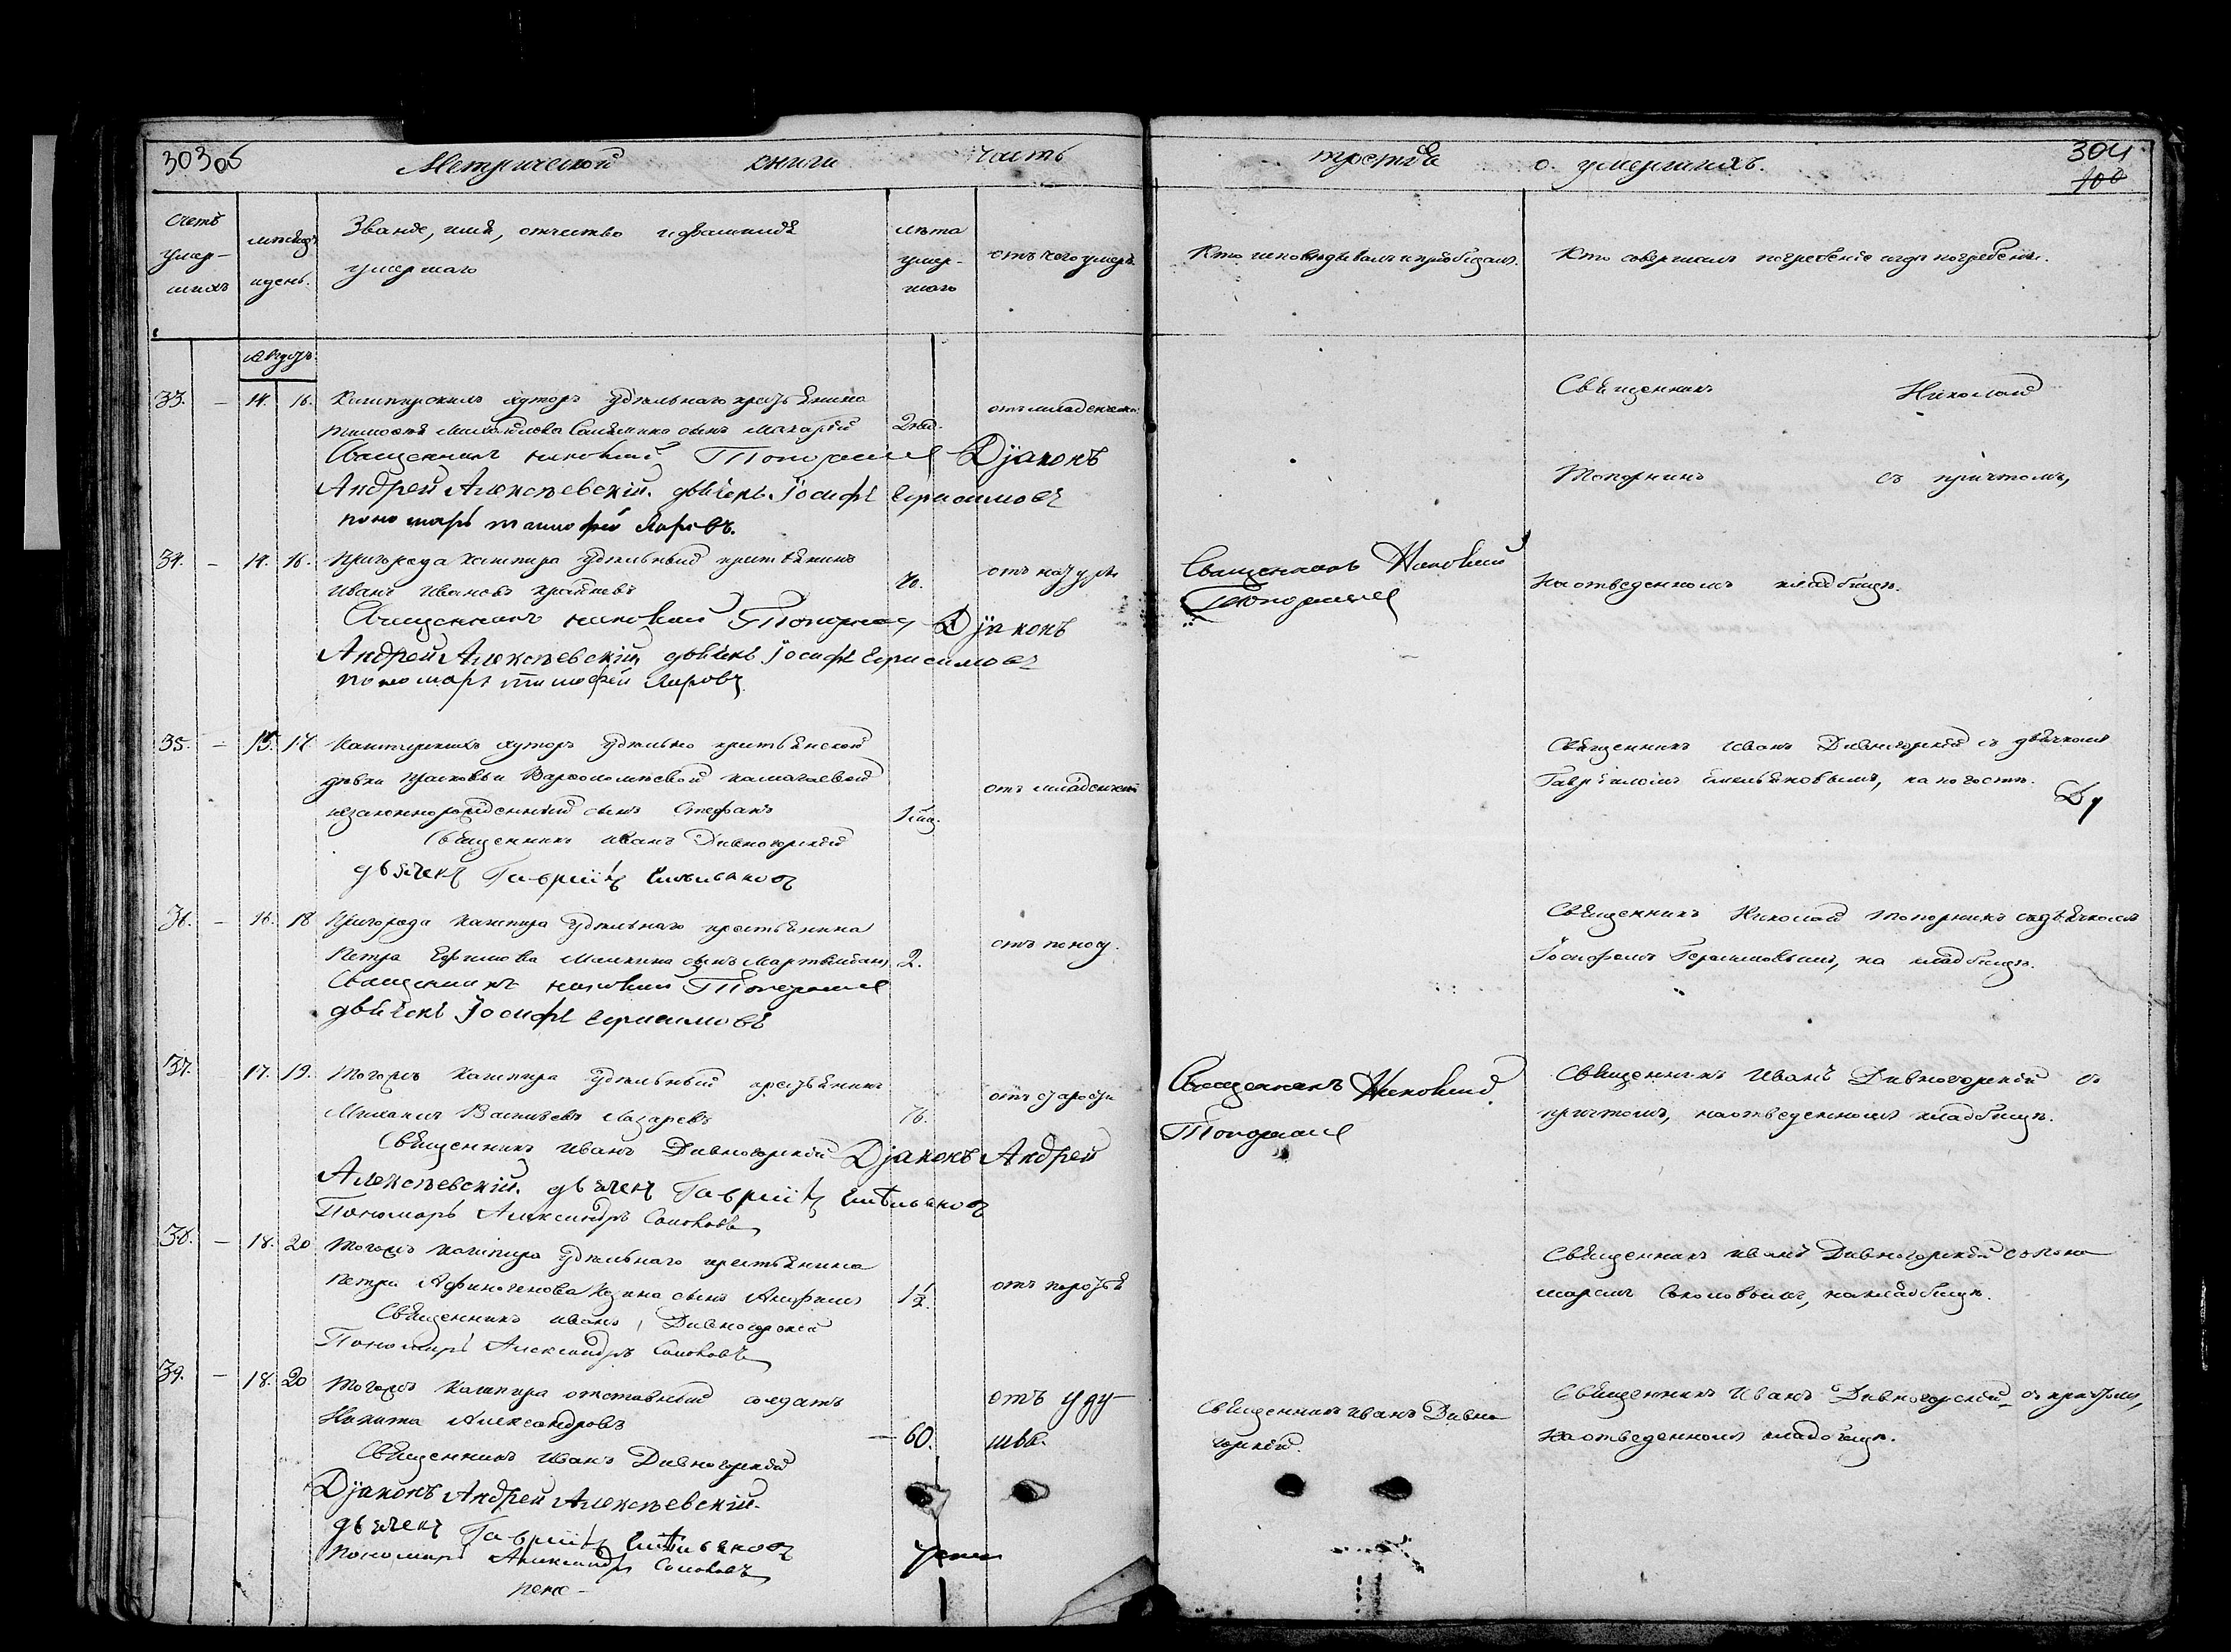 303об
Метрической книги часть
третiя о умершихъ.
304
106
Счетъ
умер-
шихъ
месяцъ
и день.
Званiе, имя, отчество и фамилiя
умершаго
лѣта
умер-
шаго
отъ чего умеръ
Кто исповѣдывалъ и прiобщалъ.
Кто совершалъ погребенiе и гдѣ погребены.
Августъ
33. – 14. 16. Кашпирскихъ хуторъ удѣльнаго крестьянина
сынъ Макарiй 2 нед. отъ младенчест.
Священникъ Николай Топорнинъ Дiаконъ
Андрей Алексѣевскiй. дьячекъ Iосифъ Герасимовъ
пономарь тимофей Лировъ.
Священникъ Николай
Топорнинъ съ причтомъ,
34. – 14. 16. Пригорода Кашпира удѣльный крестьянинъ
Иванъ Ивановъ 70. отъ
Священникъ Николай Топорнинъ Дiаконъ
Андрей Алексѣевскiй дьячекъ Iосифъ Герасимовъ
пономарь тимофей Лировъ
Священникъ Николай
Топорнинъ
на отведенномъ кладбищѣ.
35. – 15. 17. Кашпирскихъ хуторъ удѣльно крестьянской
дѣвки Прасковьи Варфоломѣевой
незаконнорожденный сынъ Стефанъ отъ младенчест
Священникъ Иванъ Дивногорскiй
дьячекъ Гаврiилъ Емельяновъ
Священникъ Иванъ Дивногорскiй съ дьячкомъ
Гаврiиломъ Емельяновымъ, на погостѣ.
36. – 16. 18 Пригорода Кашпира удѣльнаго крестьянина
Петра Ефимова сынъ 2. отъ поносу.
Священникъ Николай Топорнинъ
дьячекъ Iосифъ Герасимовъ
Священникъ Николай Топорнинъ съ дьячкомъ
Iосифомъ Герасимовымъ, на кладбищѣ.
37. 17. 19. Тогожъ Кашпира удѣльный крестьянинъ
Михаилъ Васильевъ Лазаревъ 76. отъ старости
Священникъ Иванъ Дивногорскiй Дiаконъ Андрей
Алексѣевскiй. дьячекъ Гаврiилъ Емельяновъ
Пономарь Александръ Соколовъ
Священникъ Николай
Топорнинъ
Священникъ Иванъ Дивногорскiй съ
причтомъ, на отведенномъ кладбищѣ.
38. – 18. 20 Тогожъ Кашпира удѣльнаго крестьянина
Петра Афиногенова сынъ 1½.
Священникъ Иванъ Дивногорскiй
Пономарь Александръ Соколовъ
Священникъ Иванъ Дивногорскiй съ поно
маремъ Соколовымъ, на кладбищѣ.
39. – 18. 20 Тогожъ Кашпира отставный солдатъ
Никита Александровъ – 60. отъ уду-
шья.
Священникъ Иванъ Дивногорскiй
Дiаконъ Андрей Алексѣевскiй.
дьячекъ Гаврiилъ Емельяновъ
Пономарь Александръ Соколовъ
Священникъ Иванъ Дивно
горскiй.
Священникъ Иванъ Дивногорскiй съ причтомъ,
на отведенномъ кладбищѣ.